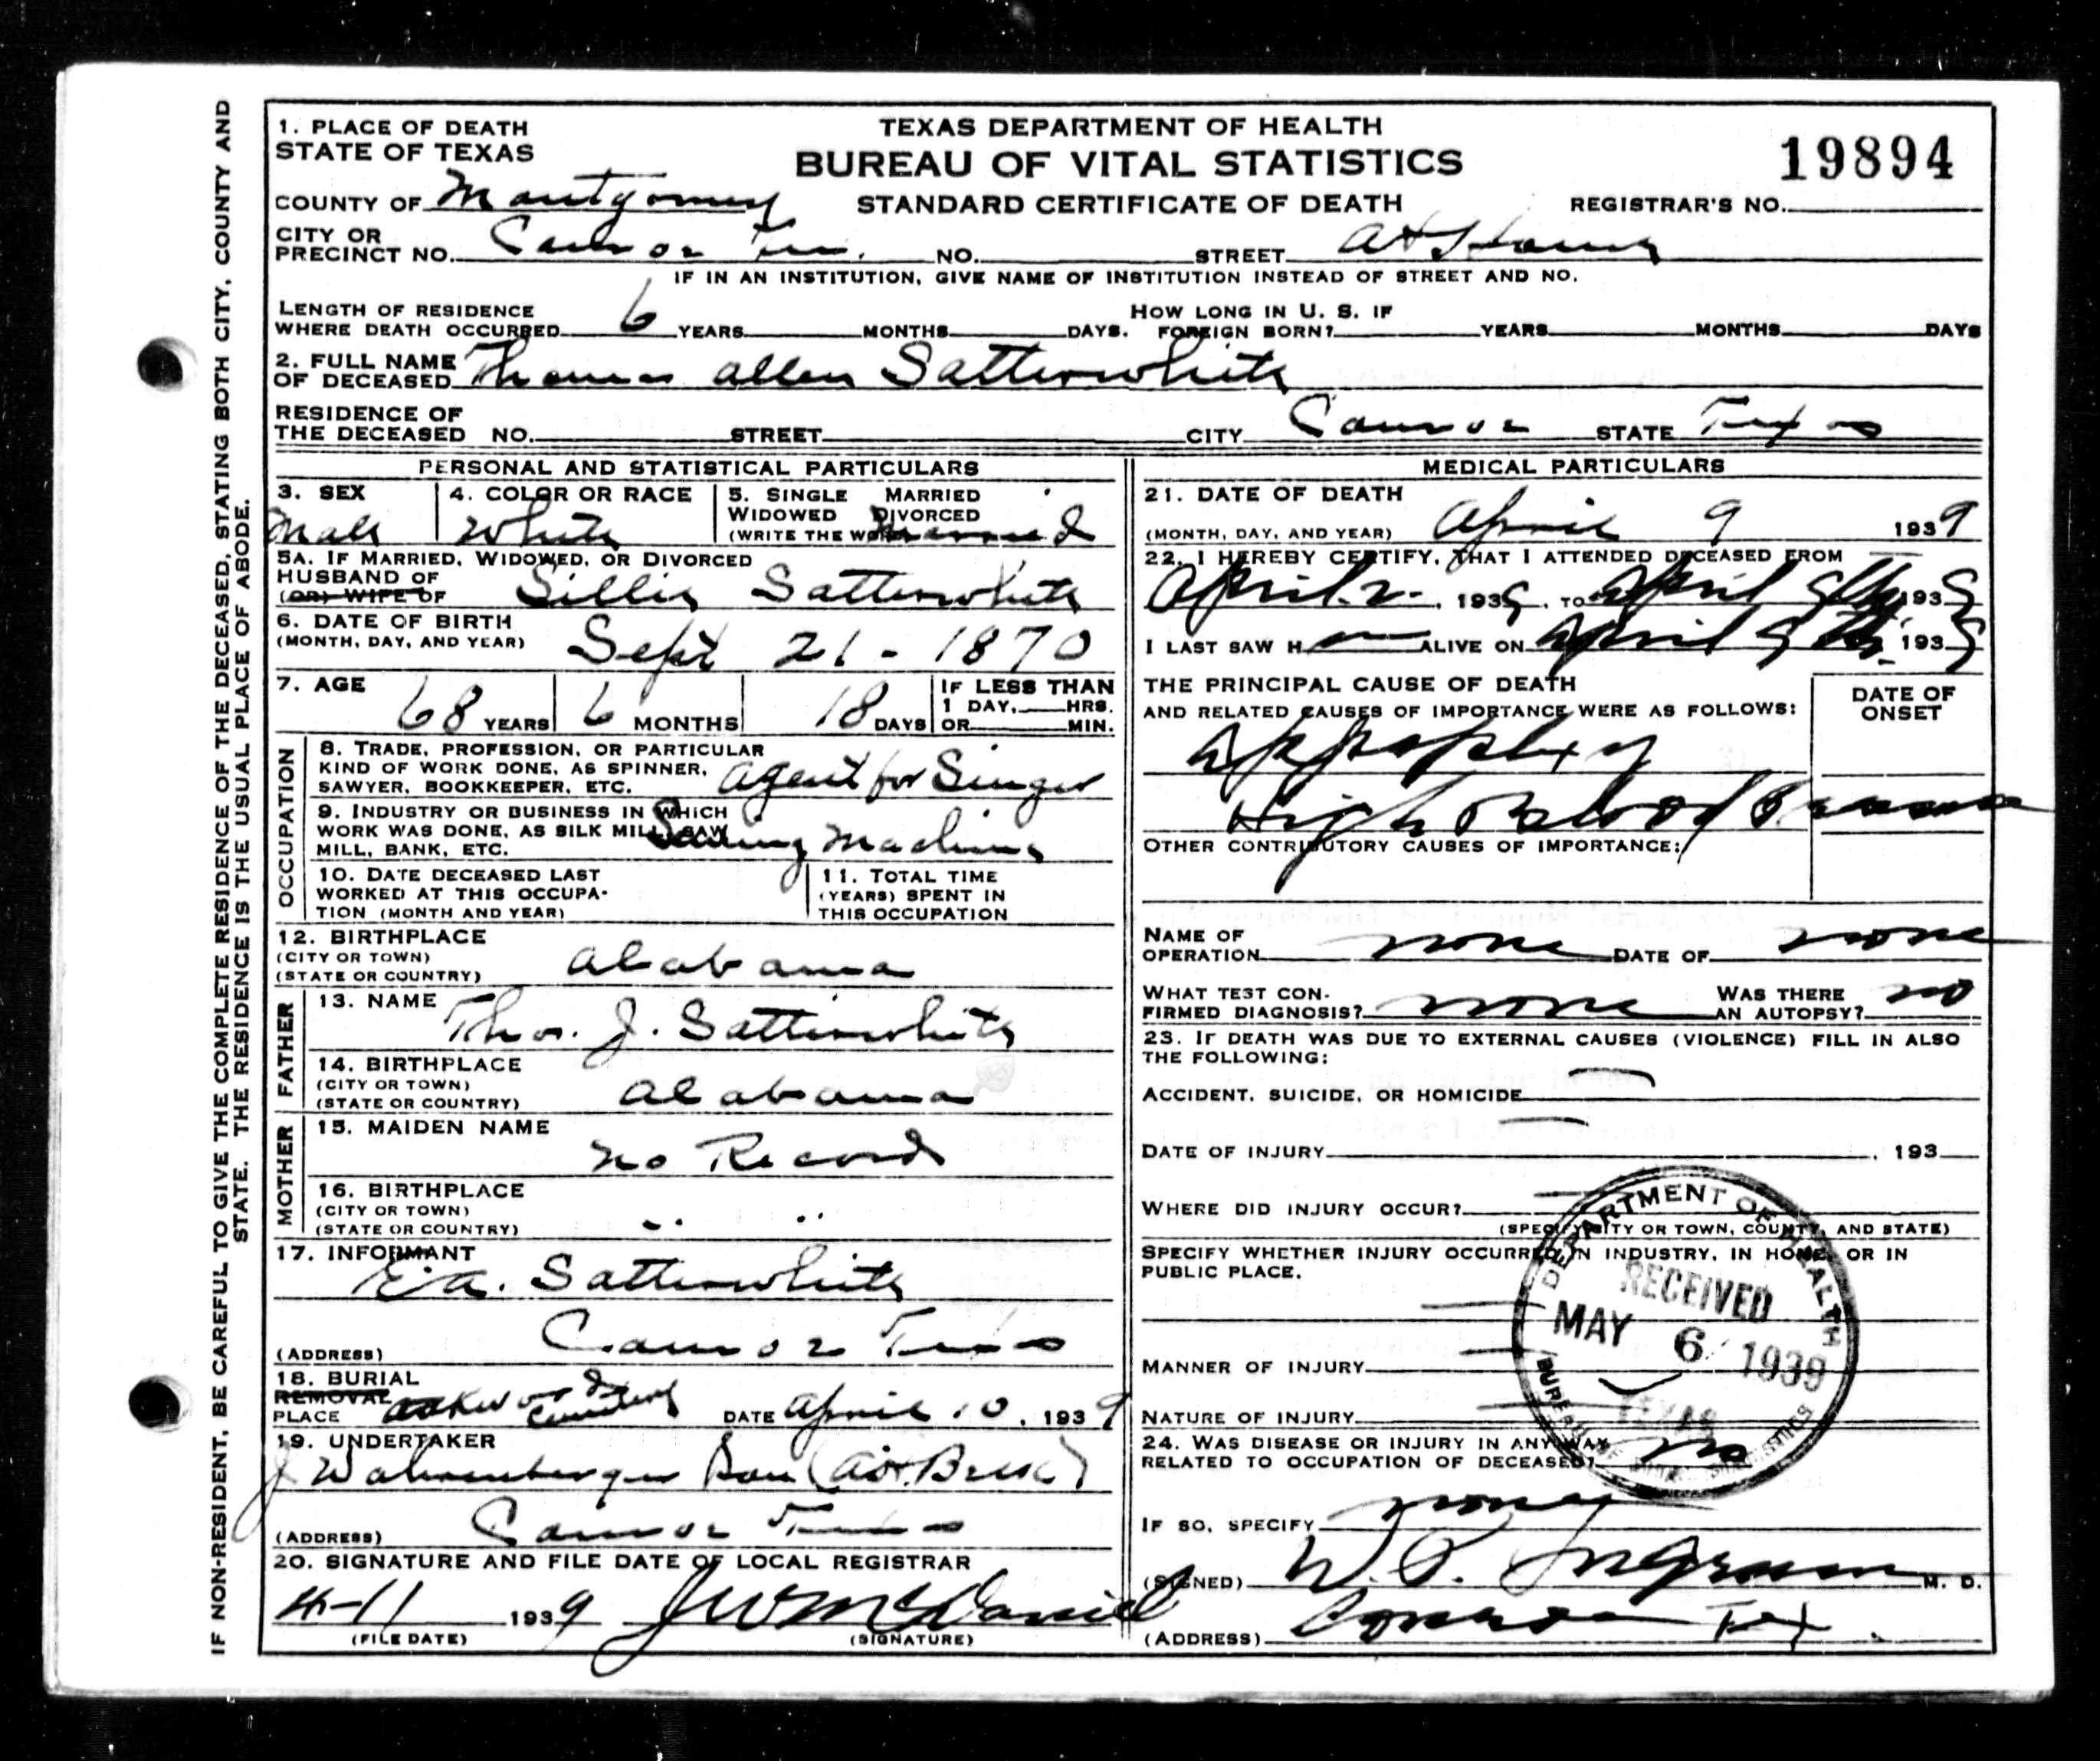 IF NON-RESIDENT, BE CAREFUL TO GIVE THE COMPLETE RESIDENCE OF THE DECEASED, STATING BOTH CITY, COUNTY AND
STATE. THE RESIDENCE IS THE USUAL PLACE OF ABODE.
1. PLACE OF DEATH
STATE OF TEXAS
TEXAS DEPARTMENT OF HEALTH
BUREAU OF VITAL STATISTICS
STANDARD CERTIFICATE OF DEATH
19894
COUNTY OF Montgomery
REGISTRAR'S NO.
CITY OR
PRECINCT NO. Conroe Tex. NO. STREET At Home
IF IN AN INSTITUTION, GIVE NAME OF INSTITUTION INSTEAD OF STREET AND NO.
LENGTH OF RESIDENCE
WHERE DEATH OCCURRED 6 YEARS MONTHS DAYS. HOW LONG IN U. S. IF
FOREIGN BORN? YEARS MONTHS DAYS
2. FULL NAME
OF DECEASED Thomas Allen Satterwhite
RESIDENCE OF
THE DECEASED NO. STREET CITY Conroe STATE Texas
PERSONAL AND STATISTICAL PARTICULARS
3. SEX
Male
4. COLOR OR RACE
White
5. SINGLE MARRIED
WIDOWED DIVORCED
(WRITE THE WORD) Married
5A. IF MARRIED, WIDOWED, OR DIVORCED
HUSBAND OF
(OR) WIFE OF Satterwhite
6. DATE OF BIRTH
(MONTH, DAY, AND YEAR) Sept 21 - 1870
7. AGE 68 YEARS 6 MONTHS 18 DAYS
IF LESS THAN
1 DAY, HRS.
OR MIN.
OCCUPATION
8. TRADE, PROFESSION, OR PARTICULAR
KIND OF WORK DONE, AS SPINNER,
SAWYER, BOOKKEEPER, ETC. Agent for Singer
9. INDUSTRY OR BUSINESS IN WHICH
WORK WAS DONE, AS SILK MILL, SAW
MILL, BANK, ETC. Sewing Machine
10. DATE DECEASED LAST
WORKED AT THIS OCCUPA-
TION (MONTH AND YEAR)
11. TOTAL TIME
(YEARS) SPENT IN
THIS OCCUPATION
12. BIRTHPLACE
(CITY OR TOWN)
(STATE OR COUNTRY) Alabama
FATHER
13. NAME Thos. J. Satterwhite
14. BIRTHPLACE
(CITY OR TOWN)
(STATE OR COUNTRY) Alabama
MOTHER
15. MAIDEN NAME
No Record
16. BIRTHPLACE
(CITY OR TOWN)
(STATE OR COUNTRY) " "
17. INFORMANT
E.A. Satterwhite
(ADDRESS) Conroe Texas
18. BURIAL
REMOVAL
PLACE Cemetery DATE April 10, 1939
19. UNDERTAKER
J Wahrenberger
(ADDRESS) Conroe Texas
20. SIGNATURE AND FILE DATE OF LOCAL REGISTRAR
4-11 1939 J W McDaniel
(FILE DATE) (SIGNATURE)
MEDICAL PARTICULARS
21. DATE OF DEATH
(MONTH, DAY, AND YEAR) April 9 1939
22. I HEREBY CERTIFY, THAT I ATTENDED DECEASED FROM
April 2, 1939, TO April 9th, 1939
I LAST SAW H ALIVE ON April 9th, 1939
THE PRINCIPAL CAUSE OF DEATH
AND RELATED CAUSES OF IMPORTANCE WERE AS FOLLOWS:
DATE OF
ONSET
Appoplexy
High Blood Pressure
OTHER CONTRIBUTORY CAUSES OF IMPORTANCE:
NAME OF
OPERATION none DATE OF none
WHAT TEST CON-
FIRMED DIAGNOSIS? none WAS THERE
AN AUTOPSY? no
23. IF DEATH WAS DUE TO EXTERNAL CAUSES (VIOLENCE) FILL IN ALSO
THE FOLLOWING:
ACCIDENT, SUICIDE, OR HOMICIDE
DATE OF INJURY , 193
WHERE DID INJURY OCCUR?
(SPECIFY CITY OR TOWN, COUNTY, AND STATE)
SPECIFY WHETHER INJURY OCCURRED IN INDUSTRY, IN HOME, OR IN
PUBLIC PLACE.
MANNER OF INJURY
NATURE OF INJURY
24. WAS DISEASE OR INJURY IN ANY WAY
RELATED TO OCCUPATION OF DECEASED? no
IF SO, SPECIFY none
(SIGNED) W. P. Ingram M. D.
(ADDRESS) Conroe Tex.
DEPARTMENT OF HEALTH
RECEIVED
MAY 6 1939
TEXAS
BUREAU OF VITAL STATISTICS